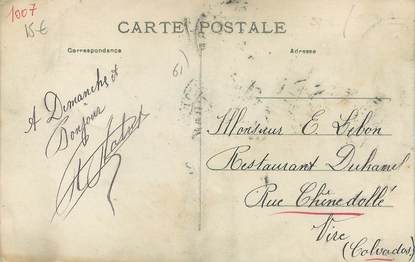 1007
15 €
CARTE POSTALE
Correspondance
Adresse
61
A Dimanche et
Bonjour
Monsieur E. Lebon
Restaurant Duhamel
Rue Chênedollé
Vire
(Calvados)